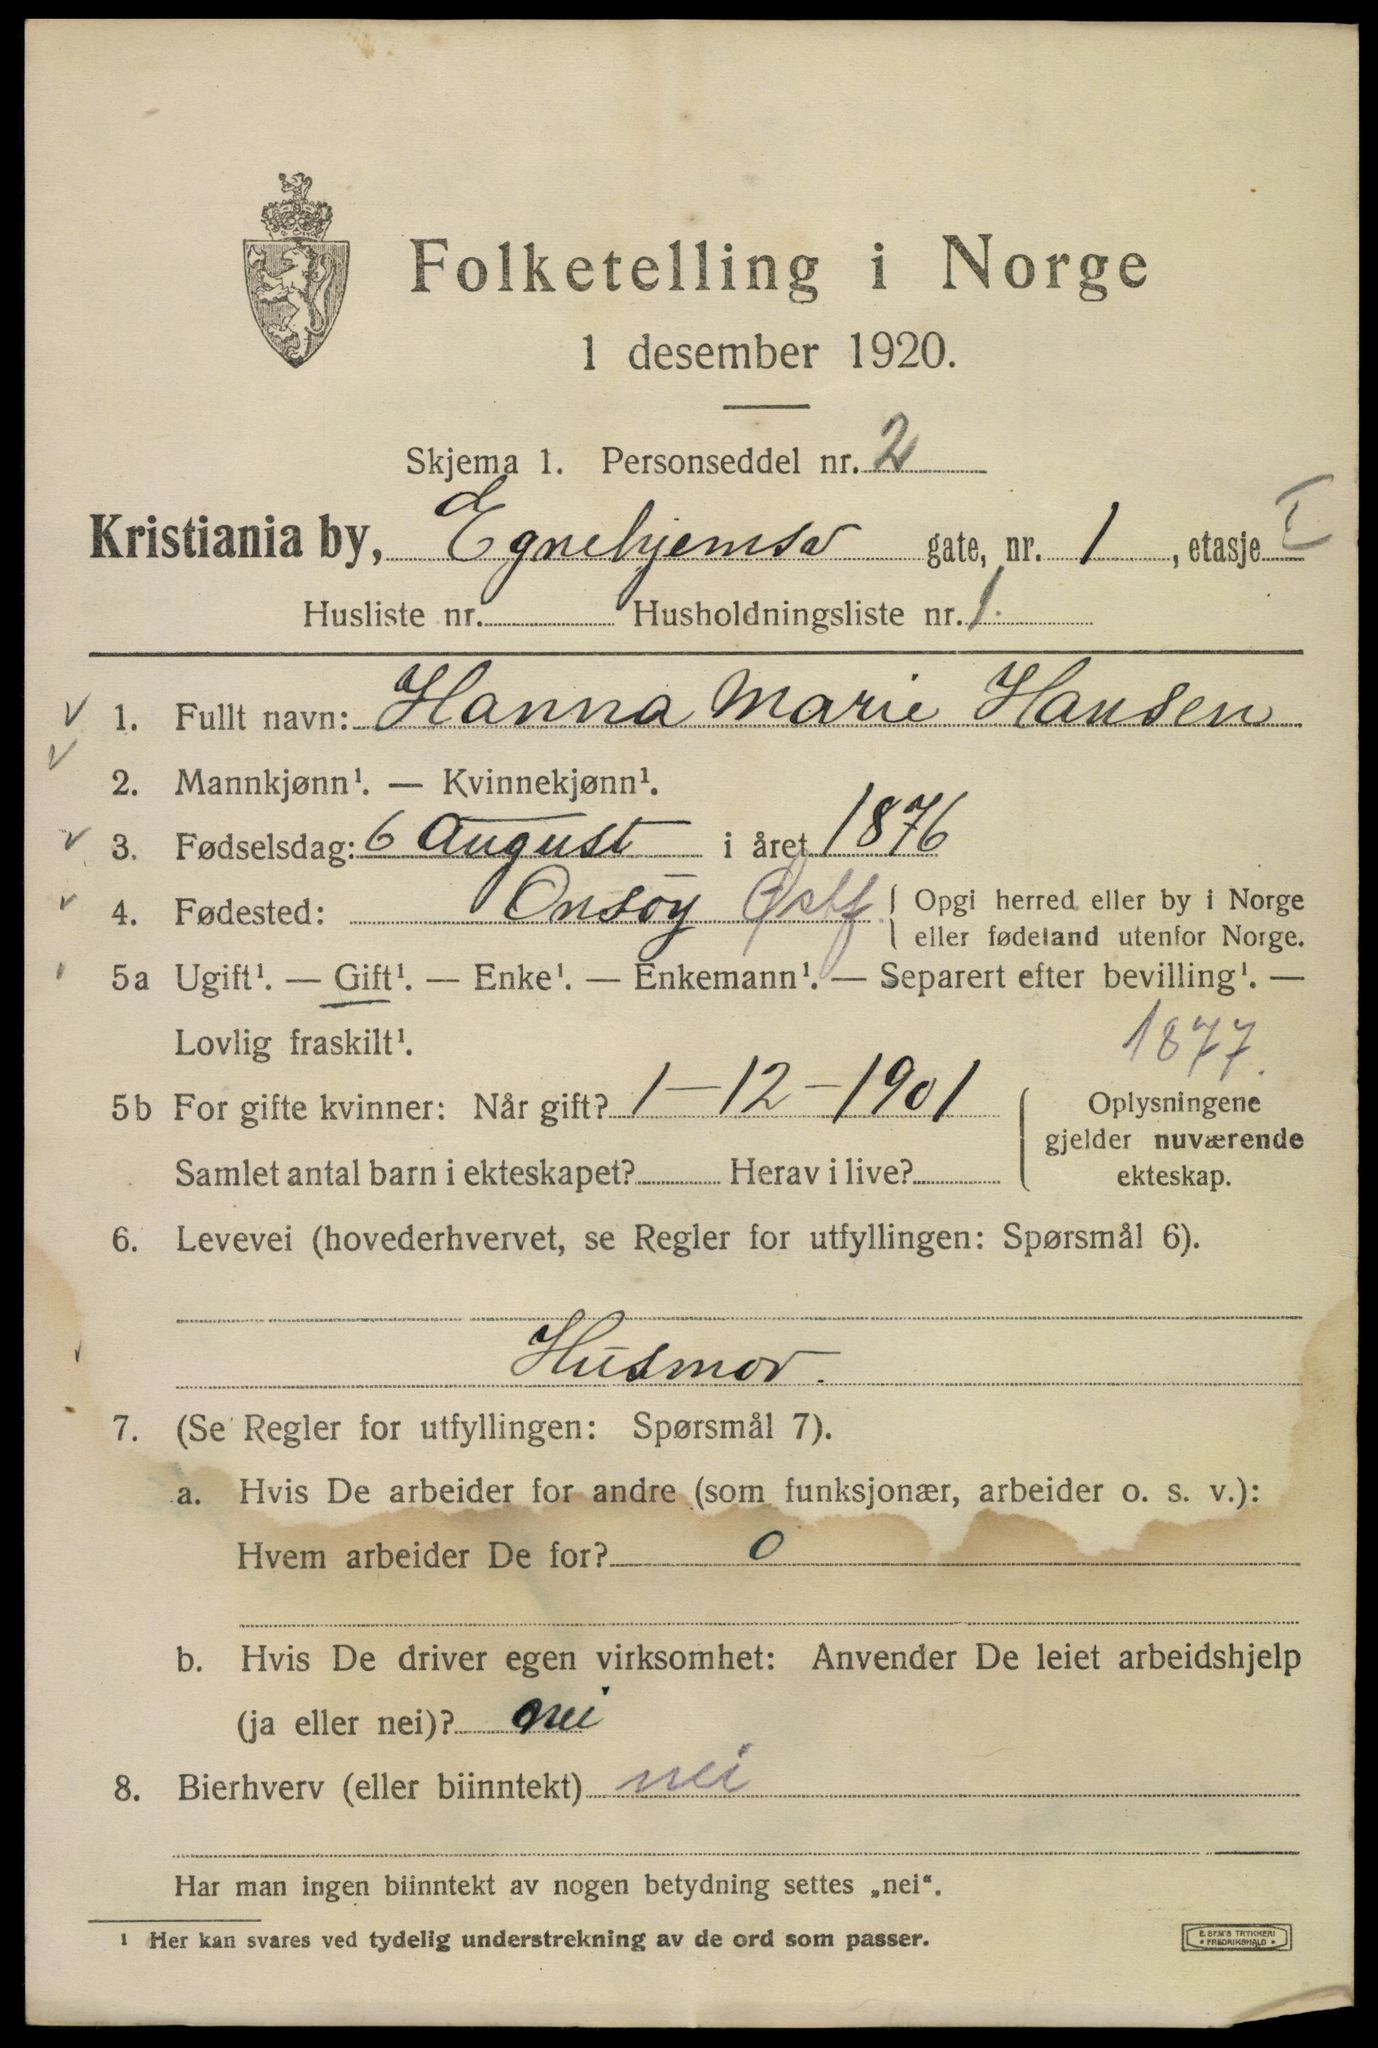 Folketelling i Norge
1 desember 1920.
Skjema 1. Personseddel nr. 2
Kristiania by, Egnehjemsv gate, nr. 1, etasje I
Husliste nr. Husholdningsliste nr. 1.
1. Fullt navn: Hanna Marie Hansen
2. Mannkjønn¹. — Kvinnekjønn¹.
3. Fødselsdag: 6 August i året 1876
4. Fødested: Onsöy Østf. { Opgi herred eller by i Norge
eller fødeland utenfor Norge.
5a Ugift¹. — Gift¹. — Enke¹. — Enkemann¹. — Separert efter bevilling¹. —
Lovlig fraskilt¹. 1877.
5b For gifte kvinner: Når gift? 1-12-1901 { Oplysningene
gjelder nuværende
Samlet antal barn i ekteskapet? Herav i live? ekteskap.
6. Levevei (hovederhvervet, se Regler for utfyllingen: Spørsmål 6).
Husmor.
7. (Se Regler for utfyllingen: Spørsmål 7).
a. Hvis De arbeider for andre (som funksjonær, arbeider o. s. v.):
Hvem arbeider De for? 0
b. Hvis De driver egen virksomhet: Anvender De leiet arbeidshjelp
(ja eller nei)? nei
8. Bierhverv (eller biinntekt) nei
Har man ingen biinntekt av nogen betydning settes „nei“.
¹ Her kan svares ved tydelig understrekning av de ord som passer.
E. SEM'S TRYKKERI
• FREDRIKSHALD •